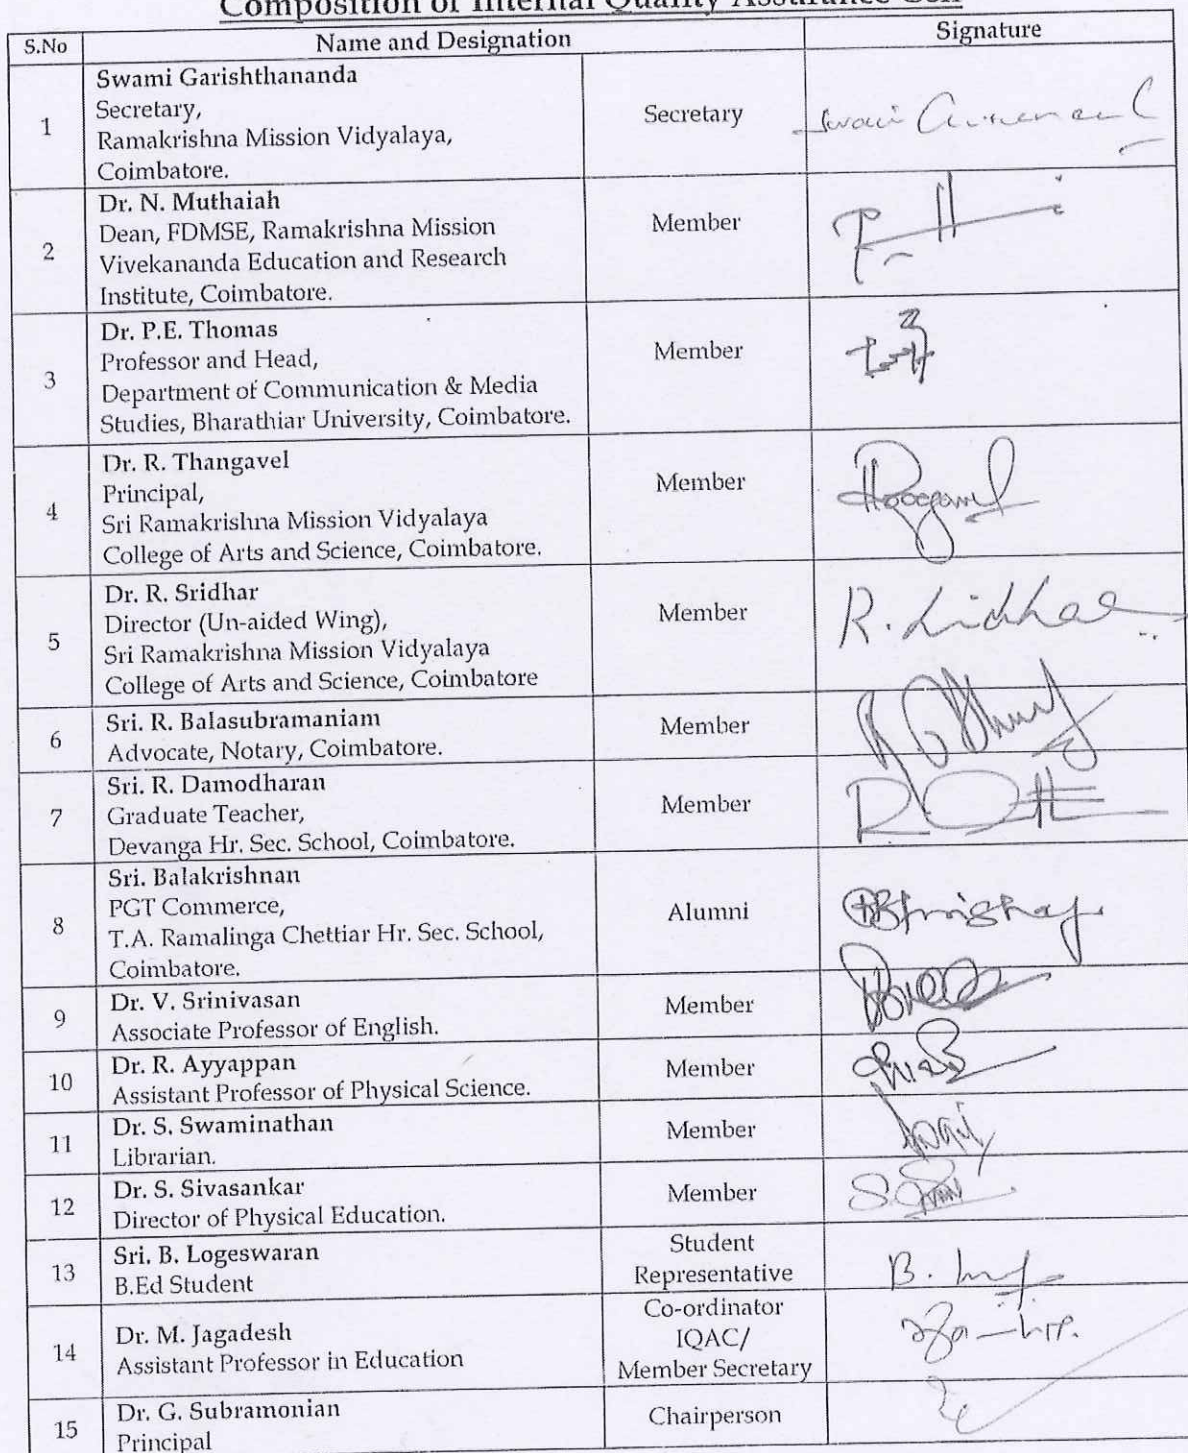 Composition of Internal Quality Assurance Cell
S.No Name and Designation Signature
1
Swami Garishthananda
Secretary,
Ramakrishna Mission Vidyalaya,
Coimbatore.
Secretary
Swami
2
Dr. N. Muthaiah
Dean, FDMSE, Ramakrishna Mission
Vivekananda Education and Research
Institute, Coimbatore.
Member
3
Dr. P.E. Thomas
Professor and Head,
Department of Communication & Media
Studies, Bharathiar University, Coimbatore.
Member
4
Dr. R. Thangavel
Principal,
Sri Ramakrishna Mission Vidyalaya
College of Arts and Science, Coimbatore.
Member
5
Dr. R. Sridhar
Director (Un-aided Wing),
Sri Ramakrishna Mission Vidyalaya
College of Arts and Science, Coimbatore
Member
R. Sridhar
6
Sri. R. Balasubramaniam
Advocate, Notary, Coimbatore.
Member
7
Sri. R. Damodharan
Graduate Teacher,
Devanga Hr. Sec. School, Coimbatore.
Member
8
Sri. Balakrishnan
PGT Commerce,
T.A. Ramalinga Chettiar Hr. Sec. School,
Coimbatore.
Alumni
9
Dr. V. Srinivasan
Associate Professor of English.
Member
10
Dr. R. Ayyappan
Assistant Professor of Physical Science.
Member
11
Dr. S. Swaminathan
Librarian.
Member
12
Dr. S. Sivasankar
Director of Physical Education.
Member
13
Sri. B. Logeswaran
B.Ed Student
Student
Representative
B.
14
Dr. M. Jagadesh
Assistant Professor in Education
Co-ordinator
IQAC/
Member Secretary
15
Dr. G. Subramonian
Principal
Chairperson